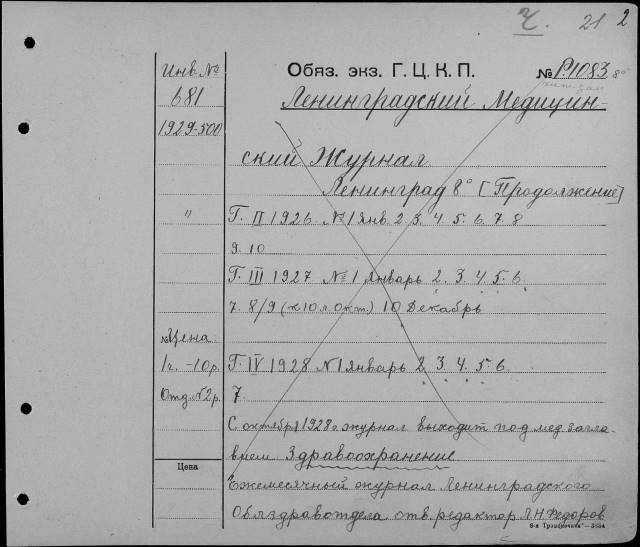 Ч. 21 2
Инв. № Обяз. экз. Г. Ц. К. П. № Р.1083 8°
681 Ленинградский Медицин-
1929-500
ский Журнал
Ленинград 8° [Продолжение]
" Г. II 1926 № 1 янв. 2. 3. 4. 5. 6. 7. 8
9. 10
Г. III 1927 № 1 Январь 2. 3. 4. 5. 6.
7. 8/9 (к 10 л. Окт.) 10 Декабрь
Цена:
1 г. -10 р. Г. IV 1928 № 1 Январь 2. 3. 4. 5. 6.
Отд. № 2 р. 7
С октября 1928 г. журнал выходит под загла-
Здравоохранение
Цена
Ежемесячный журнал Ленинградского
Облздравотдела отв. редактор Федоров